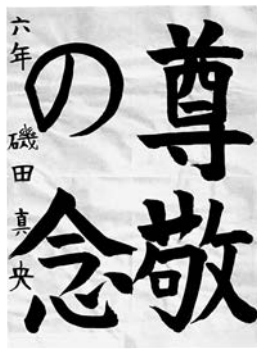 尊敬
の念
六年 磯田真央